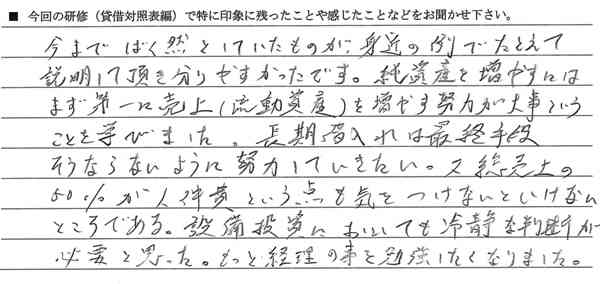 ■ 今回の研修（貸借対照表編）で特に印象に残ったことや感じたことなどをお聞かせ下さい。
今までばく然としていたものが、身近の例でたとえて
説明して頂き分りやすかったです。純資産を増やすには
まず第一に売上（流動資産）を増やす努力が大事という
ことを学びました。長期借入れは最終手段
そうならないように努力していきたい。又総売上の
50％が人件費という点も気をつけないといけない
ところである。設備投資においても冷静な判断が
必要と思った。もっと経理の事を勉強したくなりました。